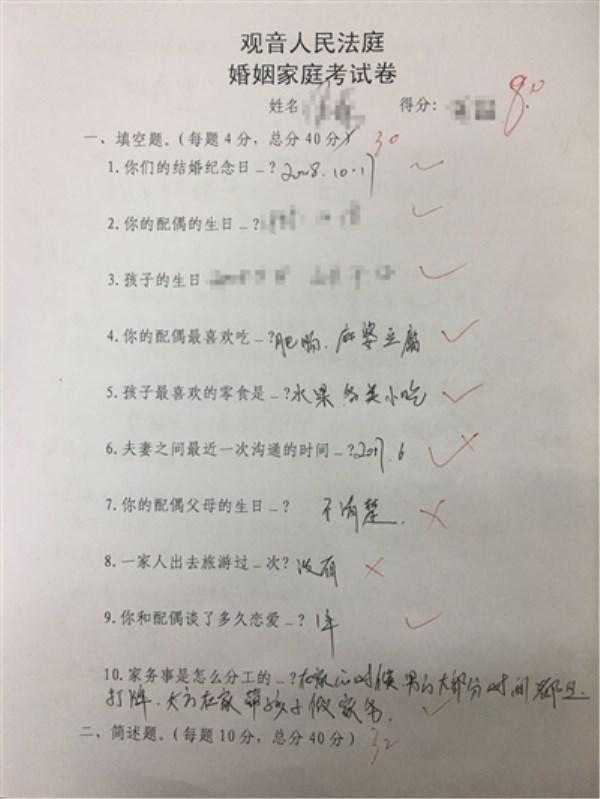 观音人民法庭
婚姻家庭考试卷
姓名 得分: 90
一、填空题。(每题4分,总分40分) 30
1.你们的结婚纪念日_?2008.10.17
2.你的配偶的生日_?
3.孩子的生日
4.你的配偶最喜欢吃_?肥肠、麻婆豆腐
5.孩子最喜欢的零食是_?水果 各类小吃
6.夫妻之间最近一次沟通的时间_?2017.6
7.你的配偶父母的生日_? 不清楚.
8.一家人出去旅游过_次?没有
9.你和配偶谈了多久恋爱_?1年
10.家务事是怎么分工的_?在家的时候 男的大部分时间都是
打牌.女方在家带孩子做家务.
二、简述题。(每题10分,总分40分) 32